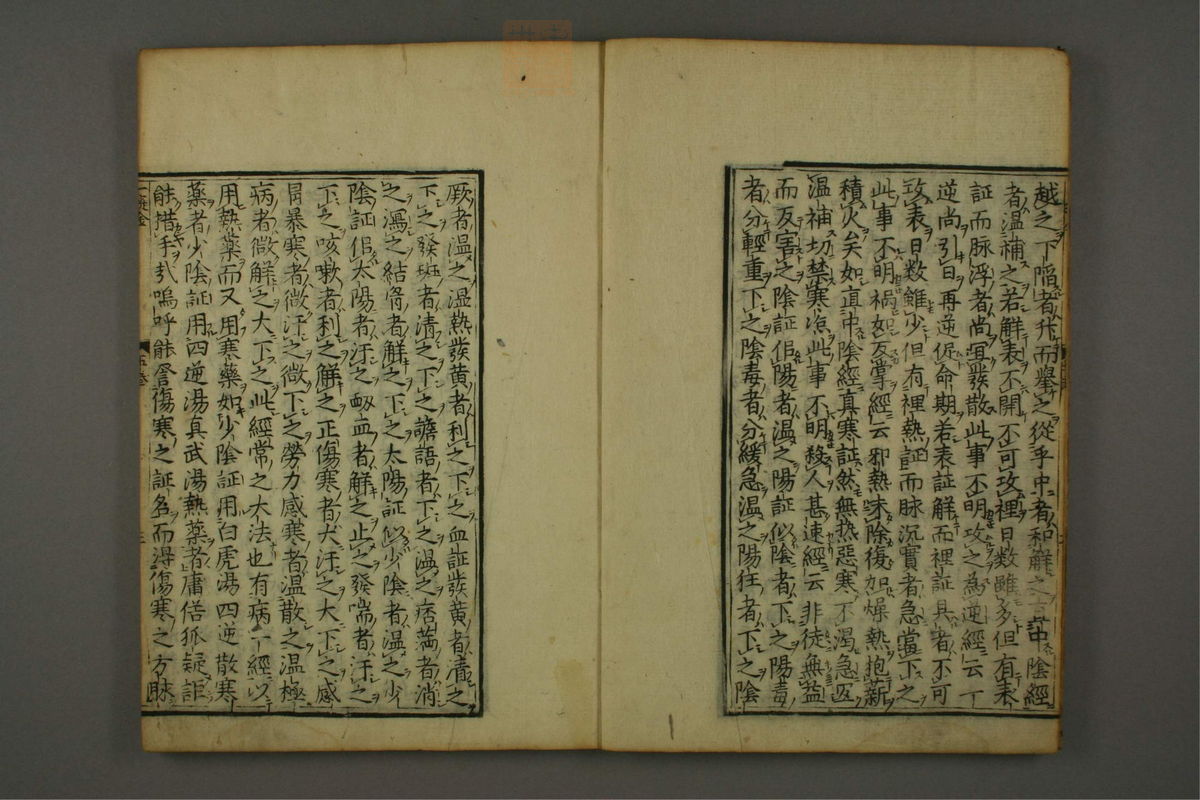 越之下陥者升而擧之從乎中者和解之直中陰經
者温補之若解表不開不可攻裡日数雖多但有表
証而脉浮者尚宜發散此事不明攻之為逆經云一
逆尚引日再逆促命期若表証解而裡証具者不可
攻表日数雖少但有裡熱証而脉沉實者急當下之
此事不明禍如反掌經云邪熱未除復加燥熱抱薪
積火矣如直中陰經真寒証然無熱惡寒不渴急宜
温補切禁寒冷此事不明殺人甚速經云非徒無益
而反害之陰証似陽者温之陽証似陰者下之陽毒
者分輕重下之陰毒者分緩急温之陽狂者下之陰
厥者温之温熱發黄者利之下之血証發黄者清之
下之發斑者清之下之譫語者下之温之痞満者消
之瀉之結胷者解之下之太陽証似少陰者温之少
陰証似太陽者汗之衂血者解之止之發喘者汗之
下之咳嗽者利之解之正傷寒者大汗之大下之感
冐暴寒者微汗之微下之勞力感寒者温散之温極
病者微解之大下之此經常之大法也有病一經以
用熱藥而又用寒藥如少陰証用白虎湯四逆散寒
藥者少陰証用四逆湯真武湯熱藥者庸俗狐疑詎
能措手哉嗚呼能䆒傷寒之証名而得傷寒之方脉